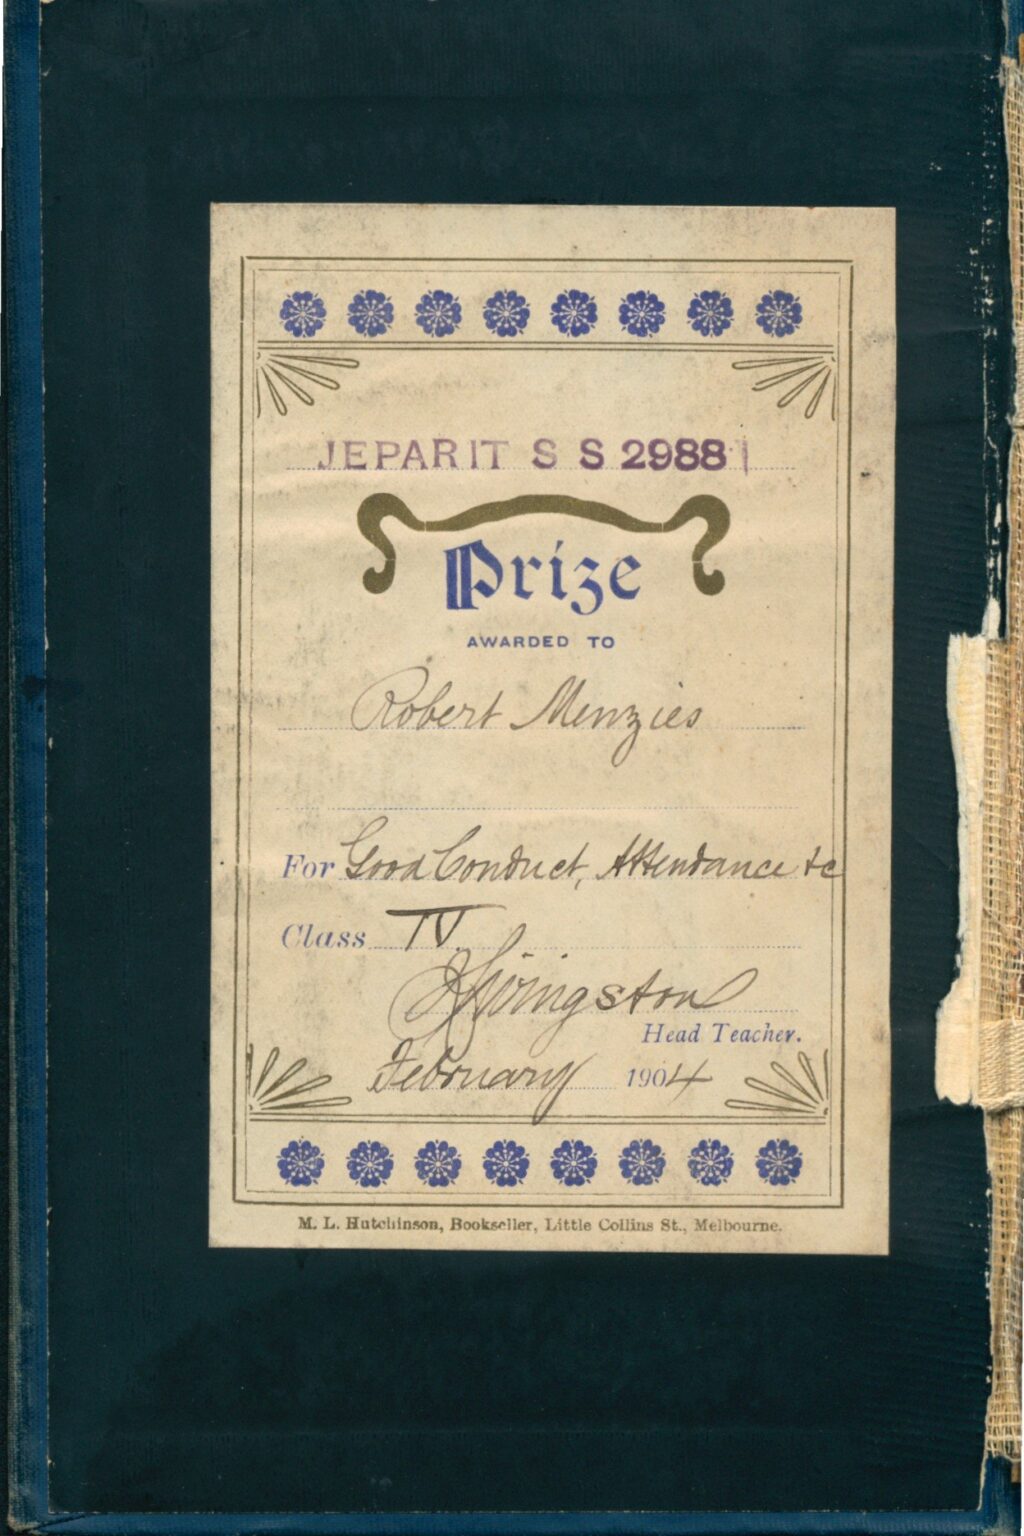 JEPARIT S S 2988
Prize
AWARDED TO
Robert Menzies
For Good Conduct, Attendance &c
Class IV.
J Livingston
Head Teacher.
February 1904
M. L. Hutchinson, Bookseller, Little Collins St., Melbourne.